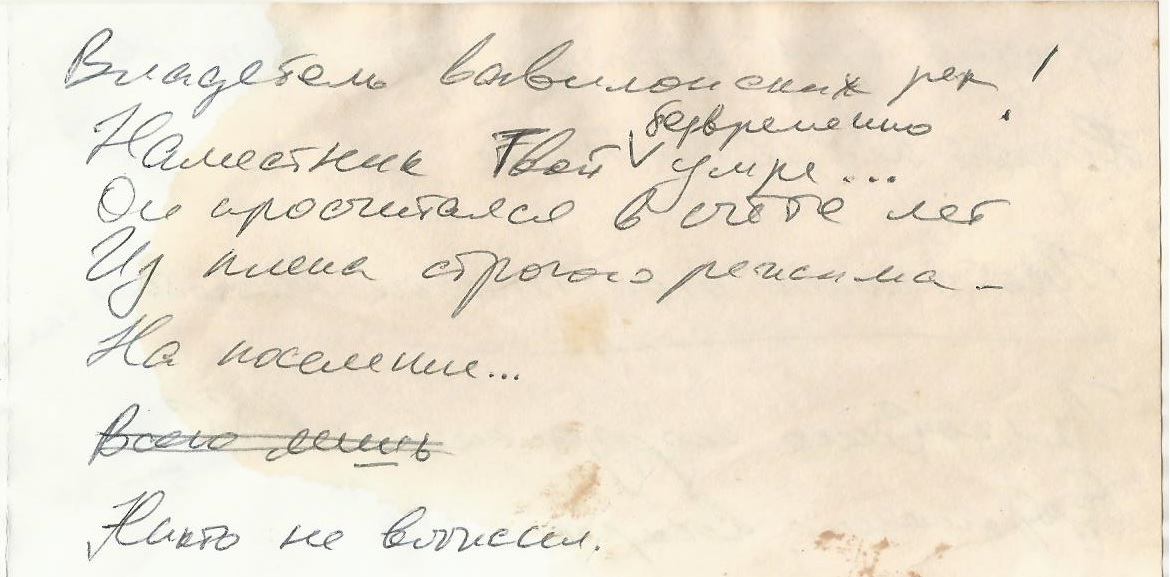 Владетель вавилонских рек!
Наместник Твой безвременно умре...
Он просчитался в счёте лет
Из плена строгого режима –
На поселение...
Всего лишь
Никто не